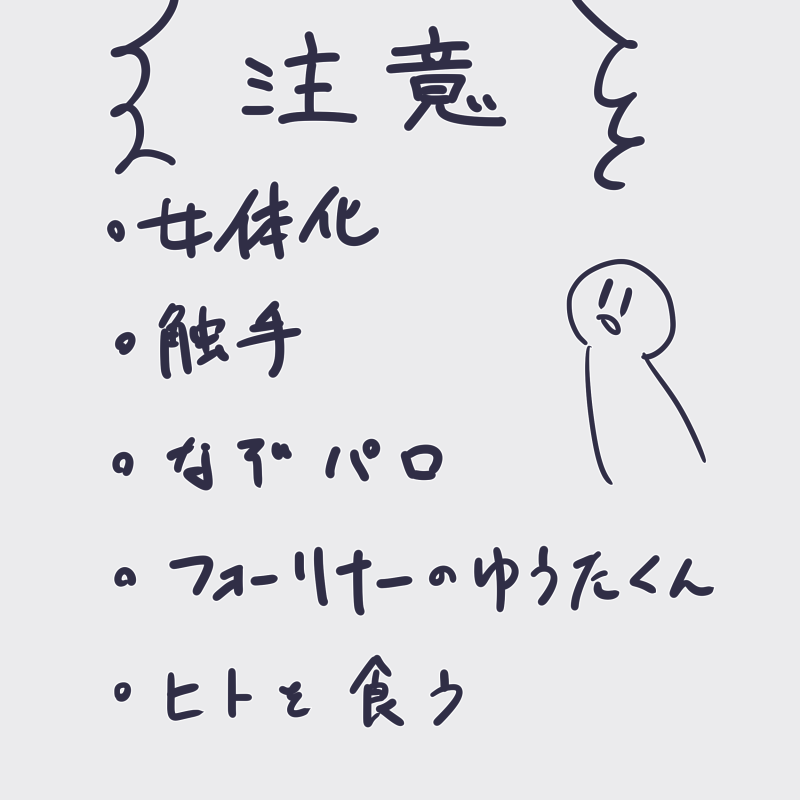 注意
・女体化
・触手
・なぞ パロ
・フォーリナーのゆうたくん
・ヒトを食う